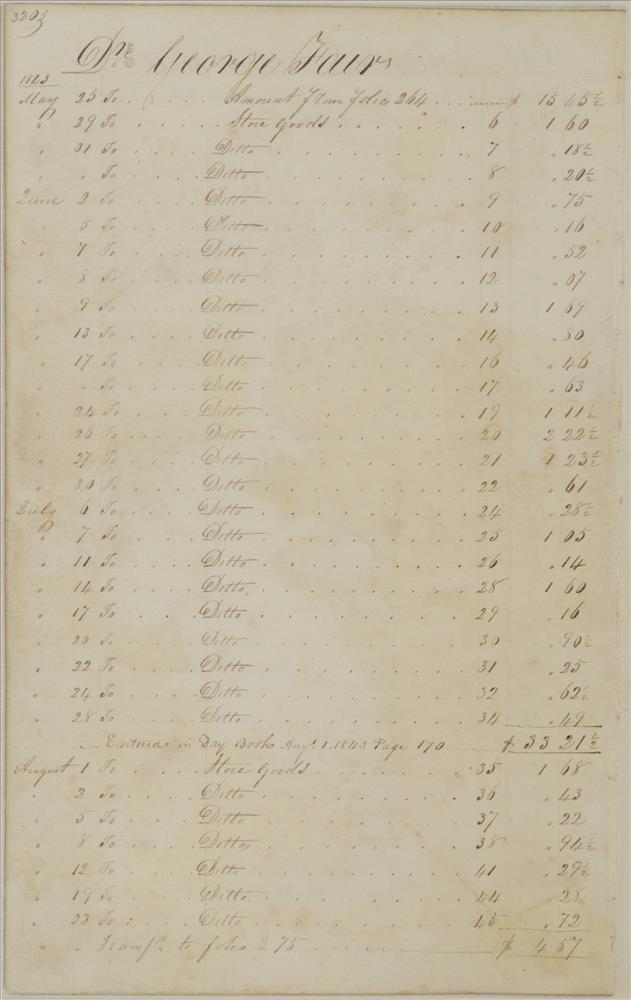 320
Dr. George Fair
1843
May 25 To Amount from folio 264 $ 15 45½
" 29 To Store Goods 6 1 60
" 31 To Ditto 7 " 18½
" " To Ditto 8 " 20½
June 2 To Ditto 9 " 75
" 5 To Ditto 10 " 16
" 7 To Ditto 11 " 52
" 8 To Ditto 12 " 07
" 9 To Ditto 13 1 69
" 13 To Ditto 14 " 80
" 17 To Ditto 16 " 46
" " To Ditto 17 " 63
" 24 To Ditto 19 1 11½
" 26 To Ditto 20 2 22½
" 27 To Ditto 21 1 23½
" 30 To Ditto 22 " 61
July 6 To Ditto 24 " 28½
" 7 To Ditto 25 1 05
" 11 To Ditto 26 " 14
" 14 To Ditto 28 1 60
" 17 To Ditto 29 " 16
" 20 To Ditto 30 " 90½
" 22 To Ditto 31 " 25
" 24 To Ditto 32 " 62½
" 28 To Ditto 34 " 49
Entered in Day Book Augt. 1. 1843 Page 170 $ 33 21½
August 1 To Store Goods 35 1 68
" 2 To Ditto 36 " 43
" 5 To Ditto 37 " 22
" 8 To Ditto 38 " 94½
" 12 To Ditto 41 " 29½
" 19 To Ditto 44 " 28
" 23 To Ditto 45 " 72
" " Transfd. to folio 275 $ 4 57